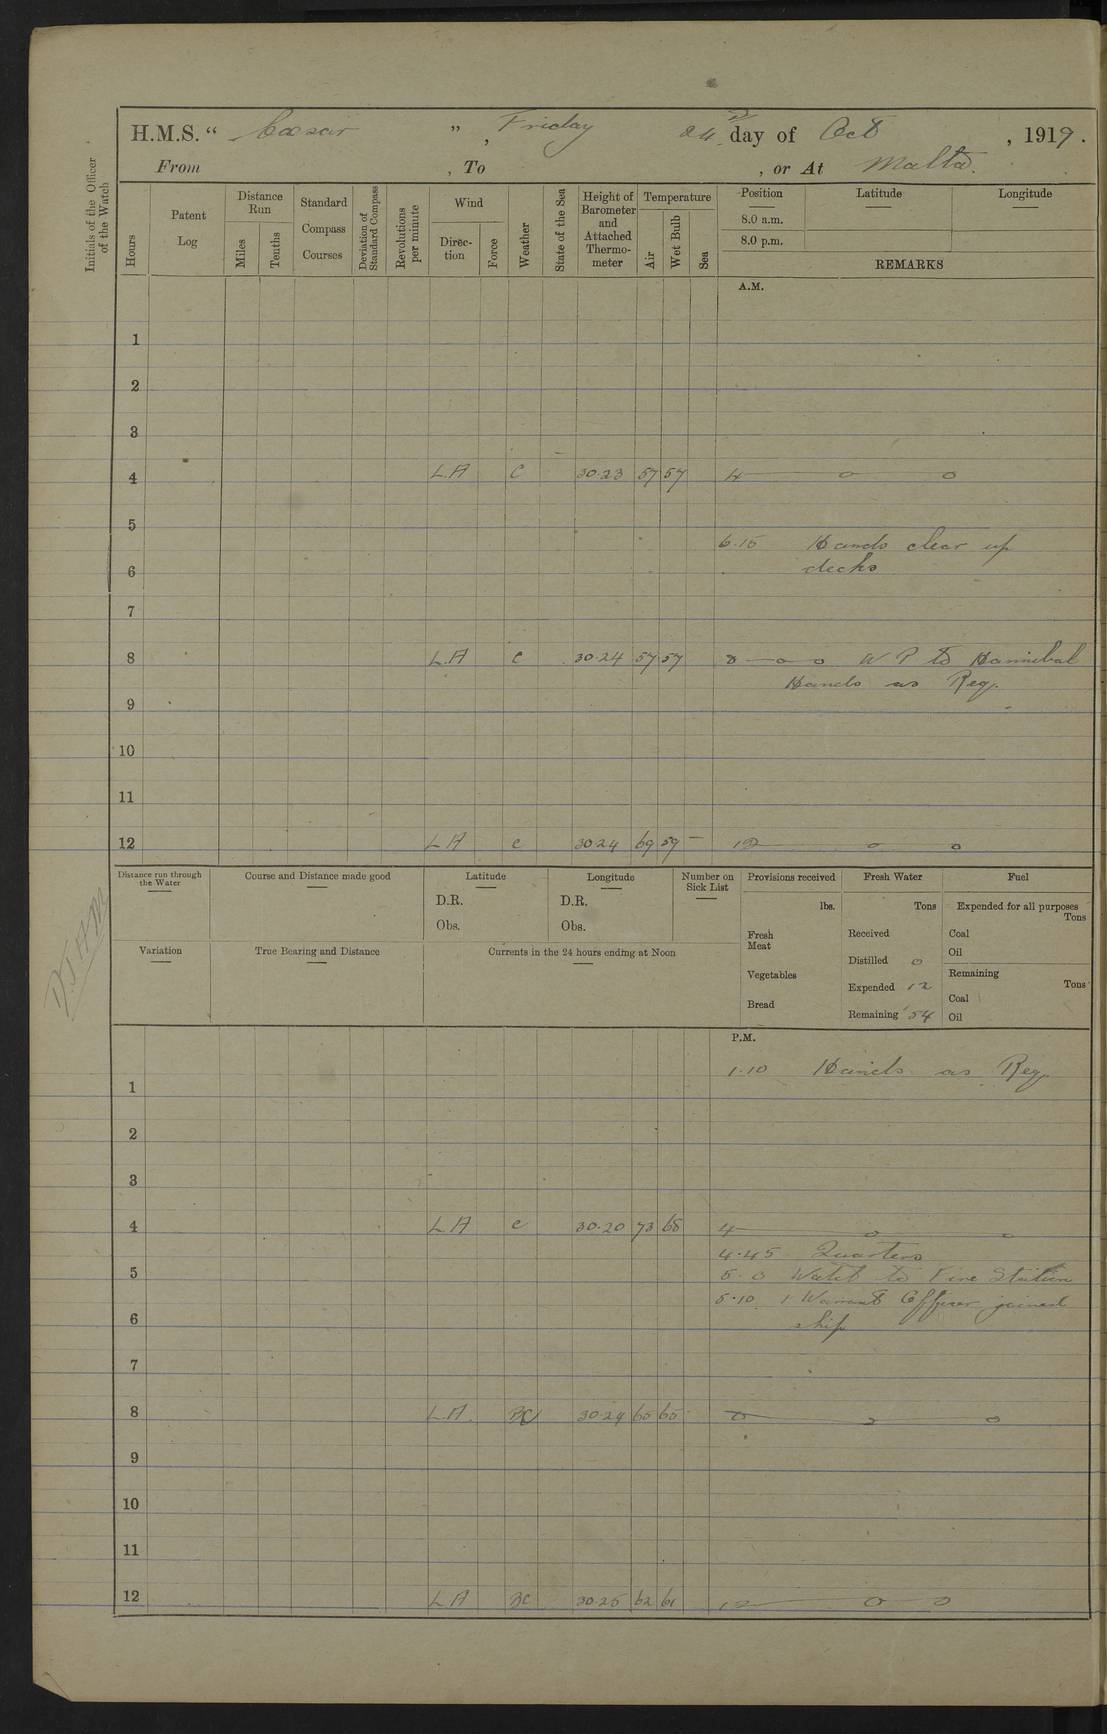 H.M.S. “ Caesar ” , Friday 24 day of Oct , 1919 .
From , To , or At Malta.
Initials of the Officer of the Watch
Hours
Patent Log
Distance Run
Miles
Tenths
Standard Compass Courses
Deviation of Standard Compass
Revolutions per minute
Wind
Direc-tion
Force
Weather
State of the Sea
Height of Barometer and Attached Thermo-meter
Temperature
Air
Wet Bulb
Sea
Position Latitude Longitude
8.0 a.m.
8.0 p.m.
REMARKS
A.M.
1
2
3
4 L.A C 30.23 57 57 4 — o o
5
6.15 Hands clear up
6 decks
7
8 L.A C 30.24 57 57 8 — o — o W P to Hannibal
Hands as Req.
9
10
11
12 L A C 30 24 69 59 — 12 — o o
Distance run through the Water
Course and Distance made good
Latitude
D.R.
Obs.
Longitude
D.R.
Obs.
Number on Sick List
Provisions received
lbs.
Fresh Meat
Vegetables
Bread
Fresh Water
Tons
Received
Distilled 0
Expended 12
Remaining 154
Fuel
Expended for all purposes
Tons
Coal
Oil
Remaining
Tons
Coal
Oil
Variation
True Bearing and Distance
Currents in the 24 hours ending at Noon
P.M.
1.10 Hands as Req.
1
2
3
4 L A C 30.20 73 68 4 — o o
4.45 Quarters
5 5.0 Watch to Fire Station
5.10 1 Warrant Officer joined
6 ship
7
8 L.A. BC 30.24 65 65 8 — o o
9
10
11
12 L A BC 30.25 62 61 12 — o — o